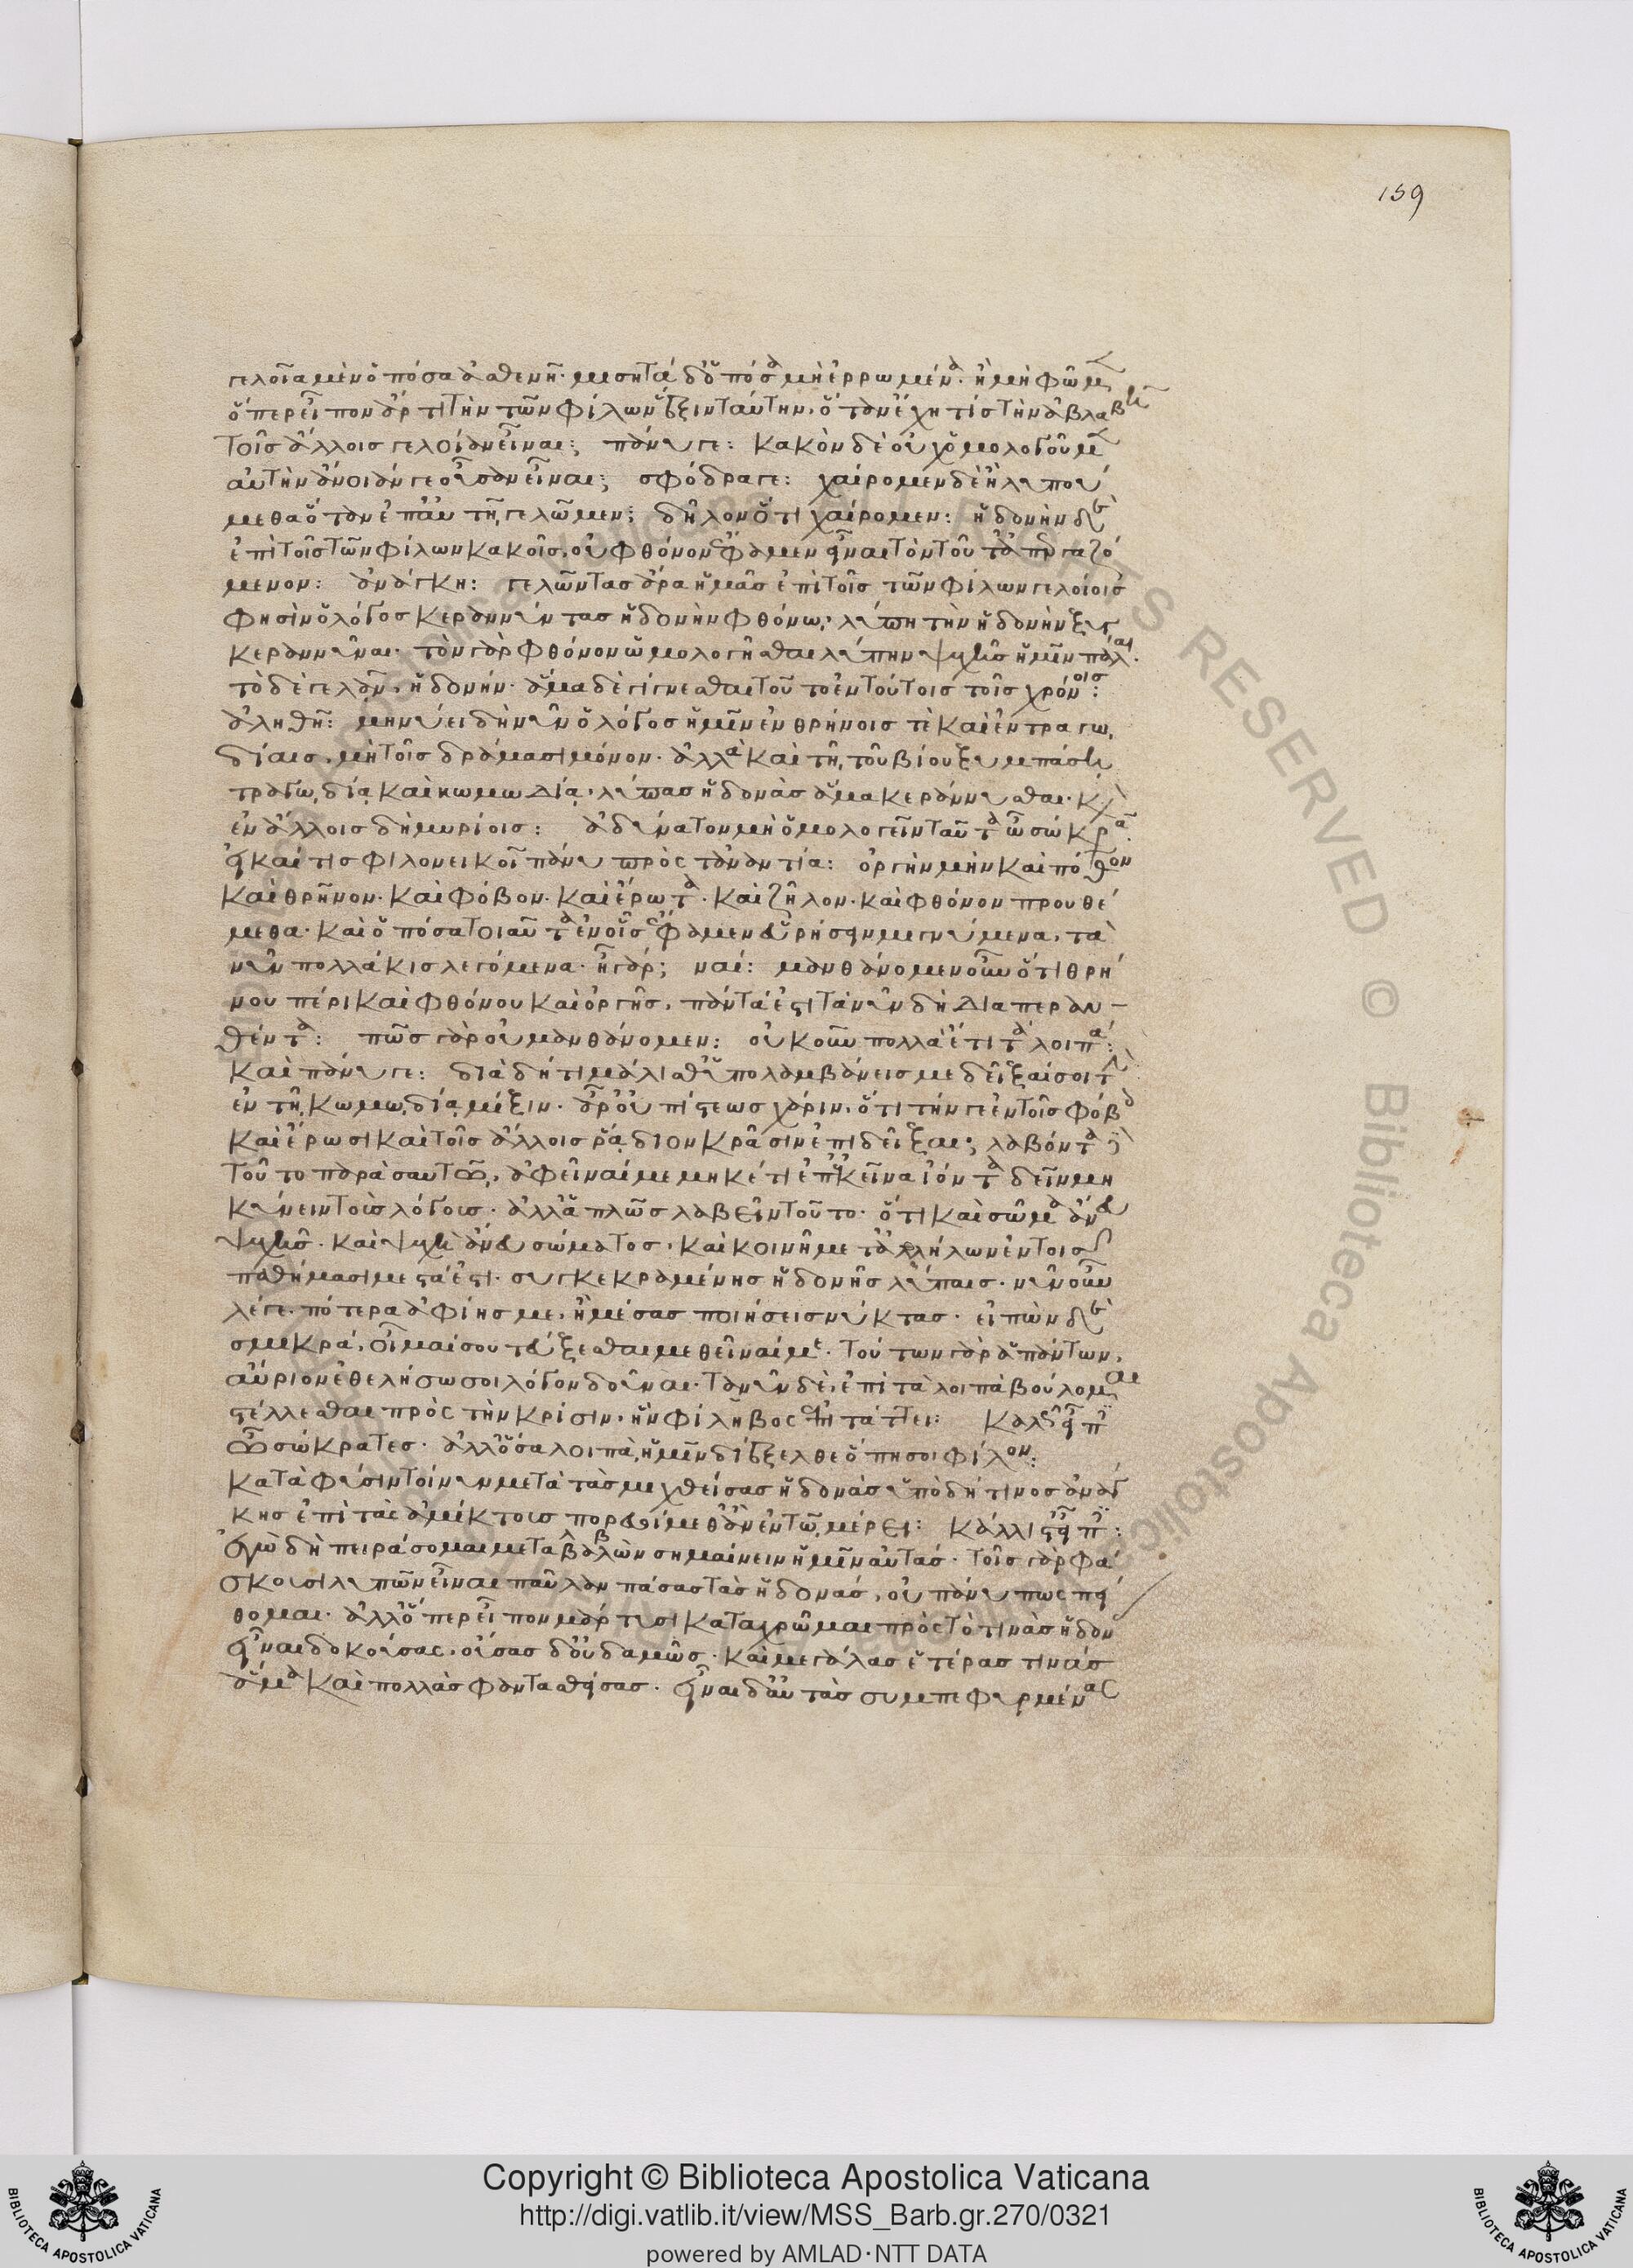 159
γελοῖα μὲν ὁπόσα ἀσθενῆ. μισητὰ δ' ὁπόσα μὴ ἐρρωμένα. ἢ μὴ φῶμεν
ὅπερ εἶπον ἄρτι τὴν τῶν φίλων ἕξιν ταύτην. ὅταν ἔχῃ τις τὴν ἀβλαβῆ
τοῖς ἄλλοις γελοίαν εἶναι; πάνυ γε: κακὸν δὲ οὐχ ὁμολογοῦμεν
αὐτὴν ἄνοιάν γε οὖσαν εἶναι; σφόδρα γε: χαίρομεν δὲ ἢ λυπού
μεθα ὅταν ἐπ' αὐτῇ γελῶμεν; δῆλον ὅτι χαίρομεν: ἡδονὴν δὲ
ἐπὶ τοῖς τῶν φίλων κακοῖς, οὐ φθόνον ἔφαμεν εἶναι τὸν τοῦτ' ἀπεργαζό
μενον: ἀνάγκη: γελῶντας ἄρα ἡμᾶς ἐπὶ τοῖς τῶν φίλων γελοίοις
φησὶν ὁ λόγος κεραννύντας ἡδονὴν φθόνῳ, λύπῃ τὴν ἡδονὴν ξυγ
κεραννύναι. τὸν γὰρ φθόνον ὡμολογῆσθαι λύπην ψυχῆς ἡμῖν πάλαι.
τὸ δὲ γελᾶν, ἡδονήν. ἅμα δὲ γίγνεσθαι τοῦτο ἐν τούτοις τοῖς χρόνοις:
ἀληθῆ: μηνύει δὴ νῦν ὁ λόγος ἡμῖν ἐν θρήνοις τὲ καὶ ἐν τραγῳ
δίαις, μὴ τοῖς δράμασι μόνον. ἀλλὰ καὶ τῇ τοῦ βίου ξυμπάσῃ
τραγῳδίᾳ καὶ κωμῳδίᾳ, λύπας ἡδονὰς ἅμα κεράννυσθαι. καὶ
ἐν ἄλλοις δὴ μυρίοις: ἀδύνατον μὴ ὁμολογεῖν ταῦτα ὦ σώκρατες
εἰ καί τις φιλονεικοῖ πάνυ πρὸς τἀναντία: ὀργὴν μὴν καὶ πόθον
καὶ θρῆνον. καὶ φόβον. καὶ ἔρωτα. καὶ ζῆλον. καὶ φθόνον προυθέ
μεθα. καὶ ὁπόσα τοιαῦτα ἐν οἷς ἔφαμεν εὑρήσειν μιγνύμενα, τὰ
νῦν πολλάκις λεγόμενα. ἦ γάρ; ναί: μανθάνομεν οὖν ὅτι θρή
νου πέρι καὶ φθόνου καὶ ὀργῆς, πάντά ἐστι τὰ νῦν δὴ διαπεραν-
θέντα: πῶς γὰρ οὐ μανθάνομεν: οὐκοῦν πολλὰ ἔτι τὰ λοιπά:
καὶ πάνυ γε: διὰ δή τι μάλισθ' ὑπολαμβάνεις με δεῖξαί σοι τὴν
ἐν τῇ κωμῳδίᾳ μίξιν. ἆρ' οὐ πίστεως χάριν, ὅτι τήν γε ἐν τοῖς φόβοις
καὶ ἔρωσι καὶ τοῖς ἄλλοις ῥᾴδιον κρᾶσιν ἐπιδεῖξαι; λαβόντα δὲ
τοῦτο παρὰ σαυτῷ, ἀφεῖναί με μηκέτι ἐπ' ἐκεῖνα ἰόντα δεῖν μη
κύνειν τοὺς λόγους. ἀλλ' ἁπλῶς λαβεῖν τοῦτο. ὅτι καὶ σῶμα ἄνευ
ψυχῆς. καὶ ψυχὴ ἄνευ σώματος. καὶ κοινῇ μετ' ἀλλήλων ἐν τοῖς
παθήμασι μεστά ἐστι. συγκεκραμένης ἡδονῆς λύπαις. νῦν οὖν
λέγε. πότερα ἀφίης με, ἢ μέσας ποιήσεις νύκτας. εἰπὼν δὲ
σμικρά, οἶμαί σου τεύξεσθαι μεθεῖναί με. τούτων γὰρ ἁπάντων,
αὔριον ἐθελήσω σοι λόγον δοῦναι. τανῦν δὲ, ἐπὶ τὰ λοιπὰ βούλομαι
στέλλεσθαι πρὸς τὴν κρίσιν, ἣν φίληβος ἐπιτάττει: καλῶς εἶπες
ὦ σώκρατες. ἀλλ' ὅσα λοιπὰ, ἡμῖν διέξελθε ὅπη σοι φίλον:
κατὰ φύσιν τοίνυν μετὰ τὰς μιχθείσας ἡδονὰς ὑπὸ δή τινος ἀνάγ
κης ἐπὶ τὰς ἀμίκτους πορευοίμεθ' ἂν ἐν τῷ μέρει: κάλλιστ' εἶπες:
ἐγὼ δὴ πειράσομαι μεταβαλὼν σημαίνειν ἡμῖν αὐτάς. τοῖς γὰρ φά
σκουσι λυπῶν εἶναι παῦλαν πάσας τὰς ἡδονάς, οὐ πάνυ πως πεί
θομαι. ἀλλ' ὅπερ εἶπον μάρτυσι καταχρῶμαι πρὸς τὸ τινὰς ἡδον
εἶναι δοκούσας, οὔσας δ' οὐδαμῶς. καὶ μεγάλας ἑτέρας τινάς
ἅμα καὶ πολλὰς φαντασθείσας. εἶναι δ' αὐτὰς συμπεφυρμένας
Copyright © Biblioteca Apostolica Vaticana
http://digi.vatlib.it/view/MSS_Barb.gr.270/0321
powered by AMLAD·NTT DATA